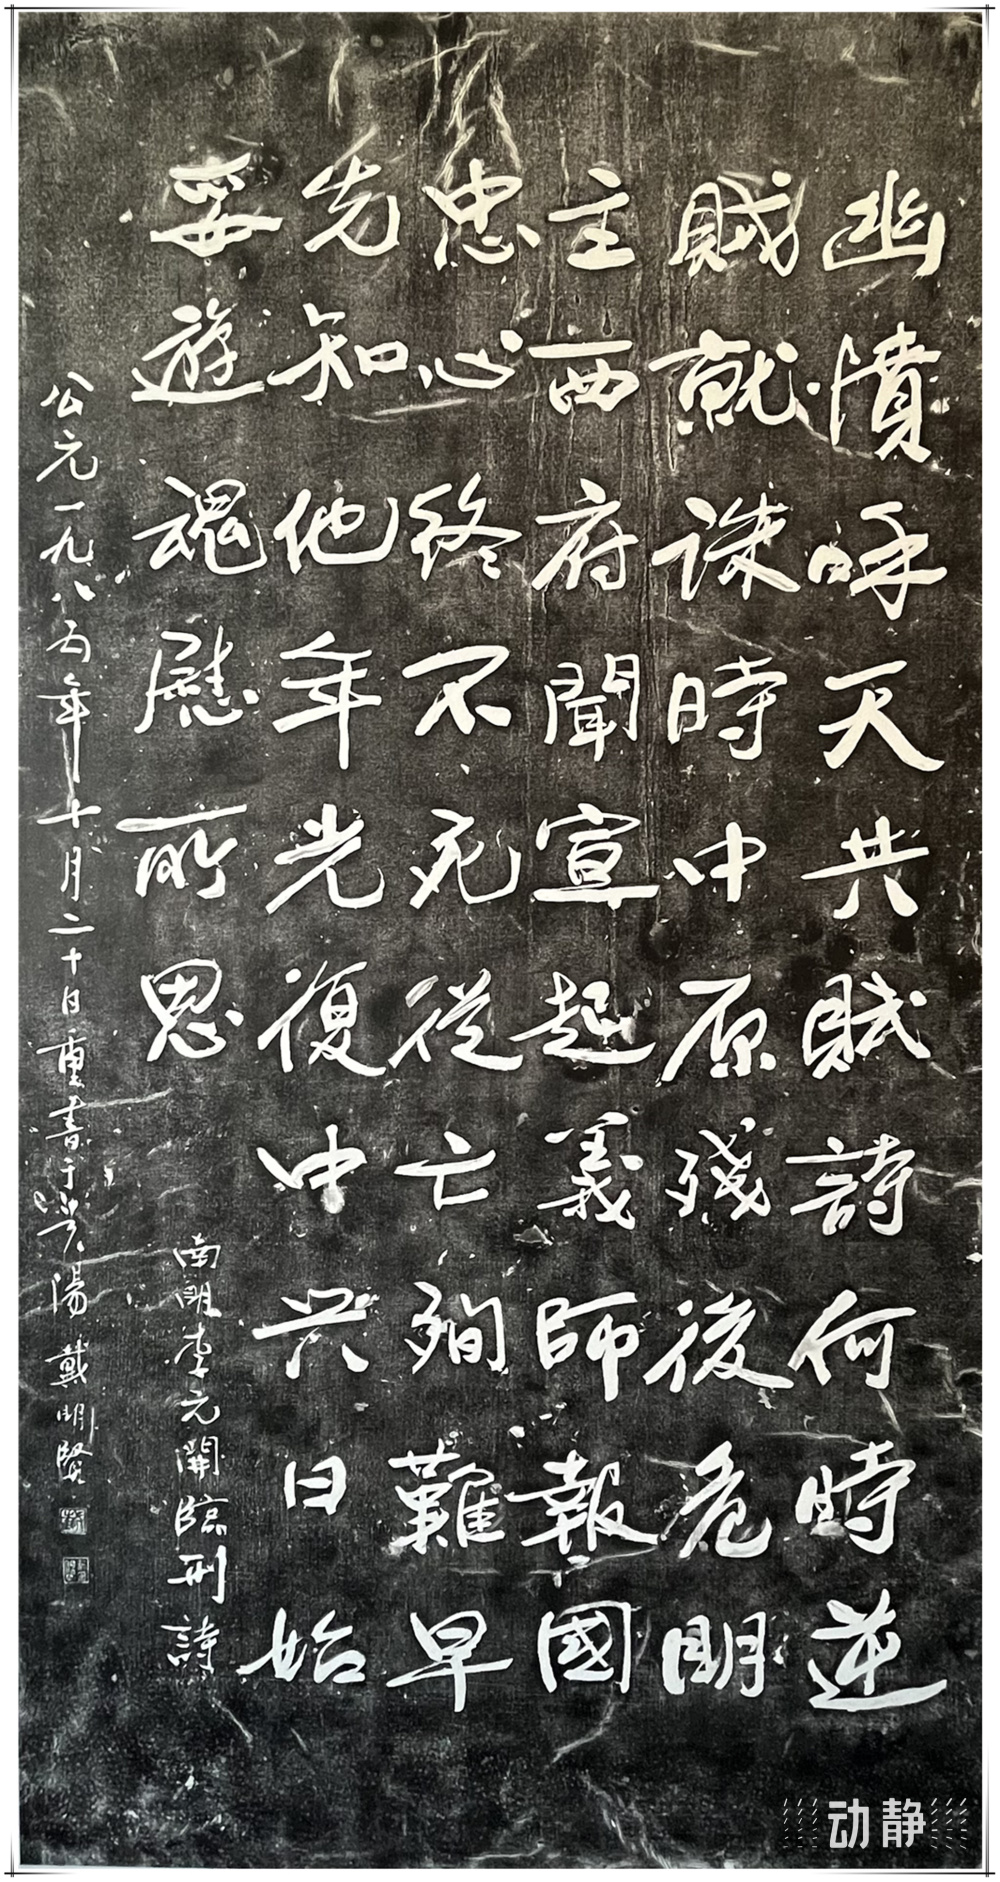 幽憤呼天共賦詩何時逆
賊就誅時中原殘後危明
主西府聞宣起義師報國
忠心終不死從亡殉難早
先知他年光復中兴日始
妥遊魂慰所思
南明李元開臨刑詩
公元一九八五年十月二十日重書于貴陽戴明賢
动静